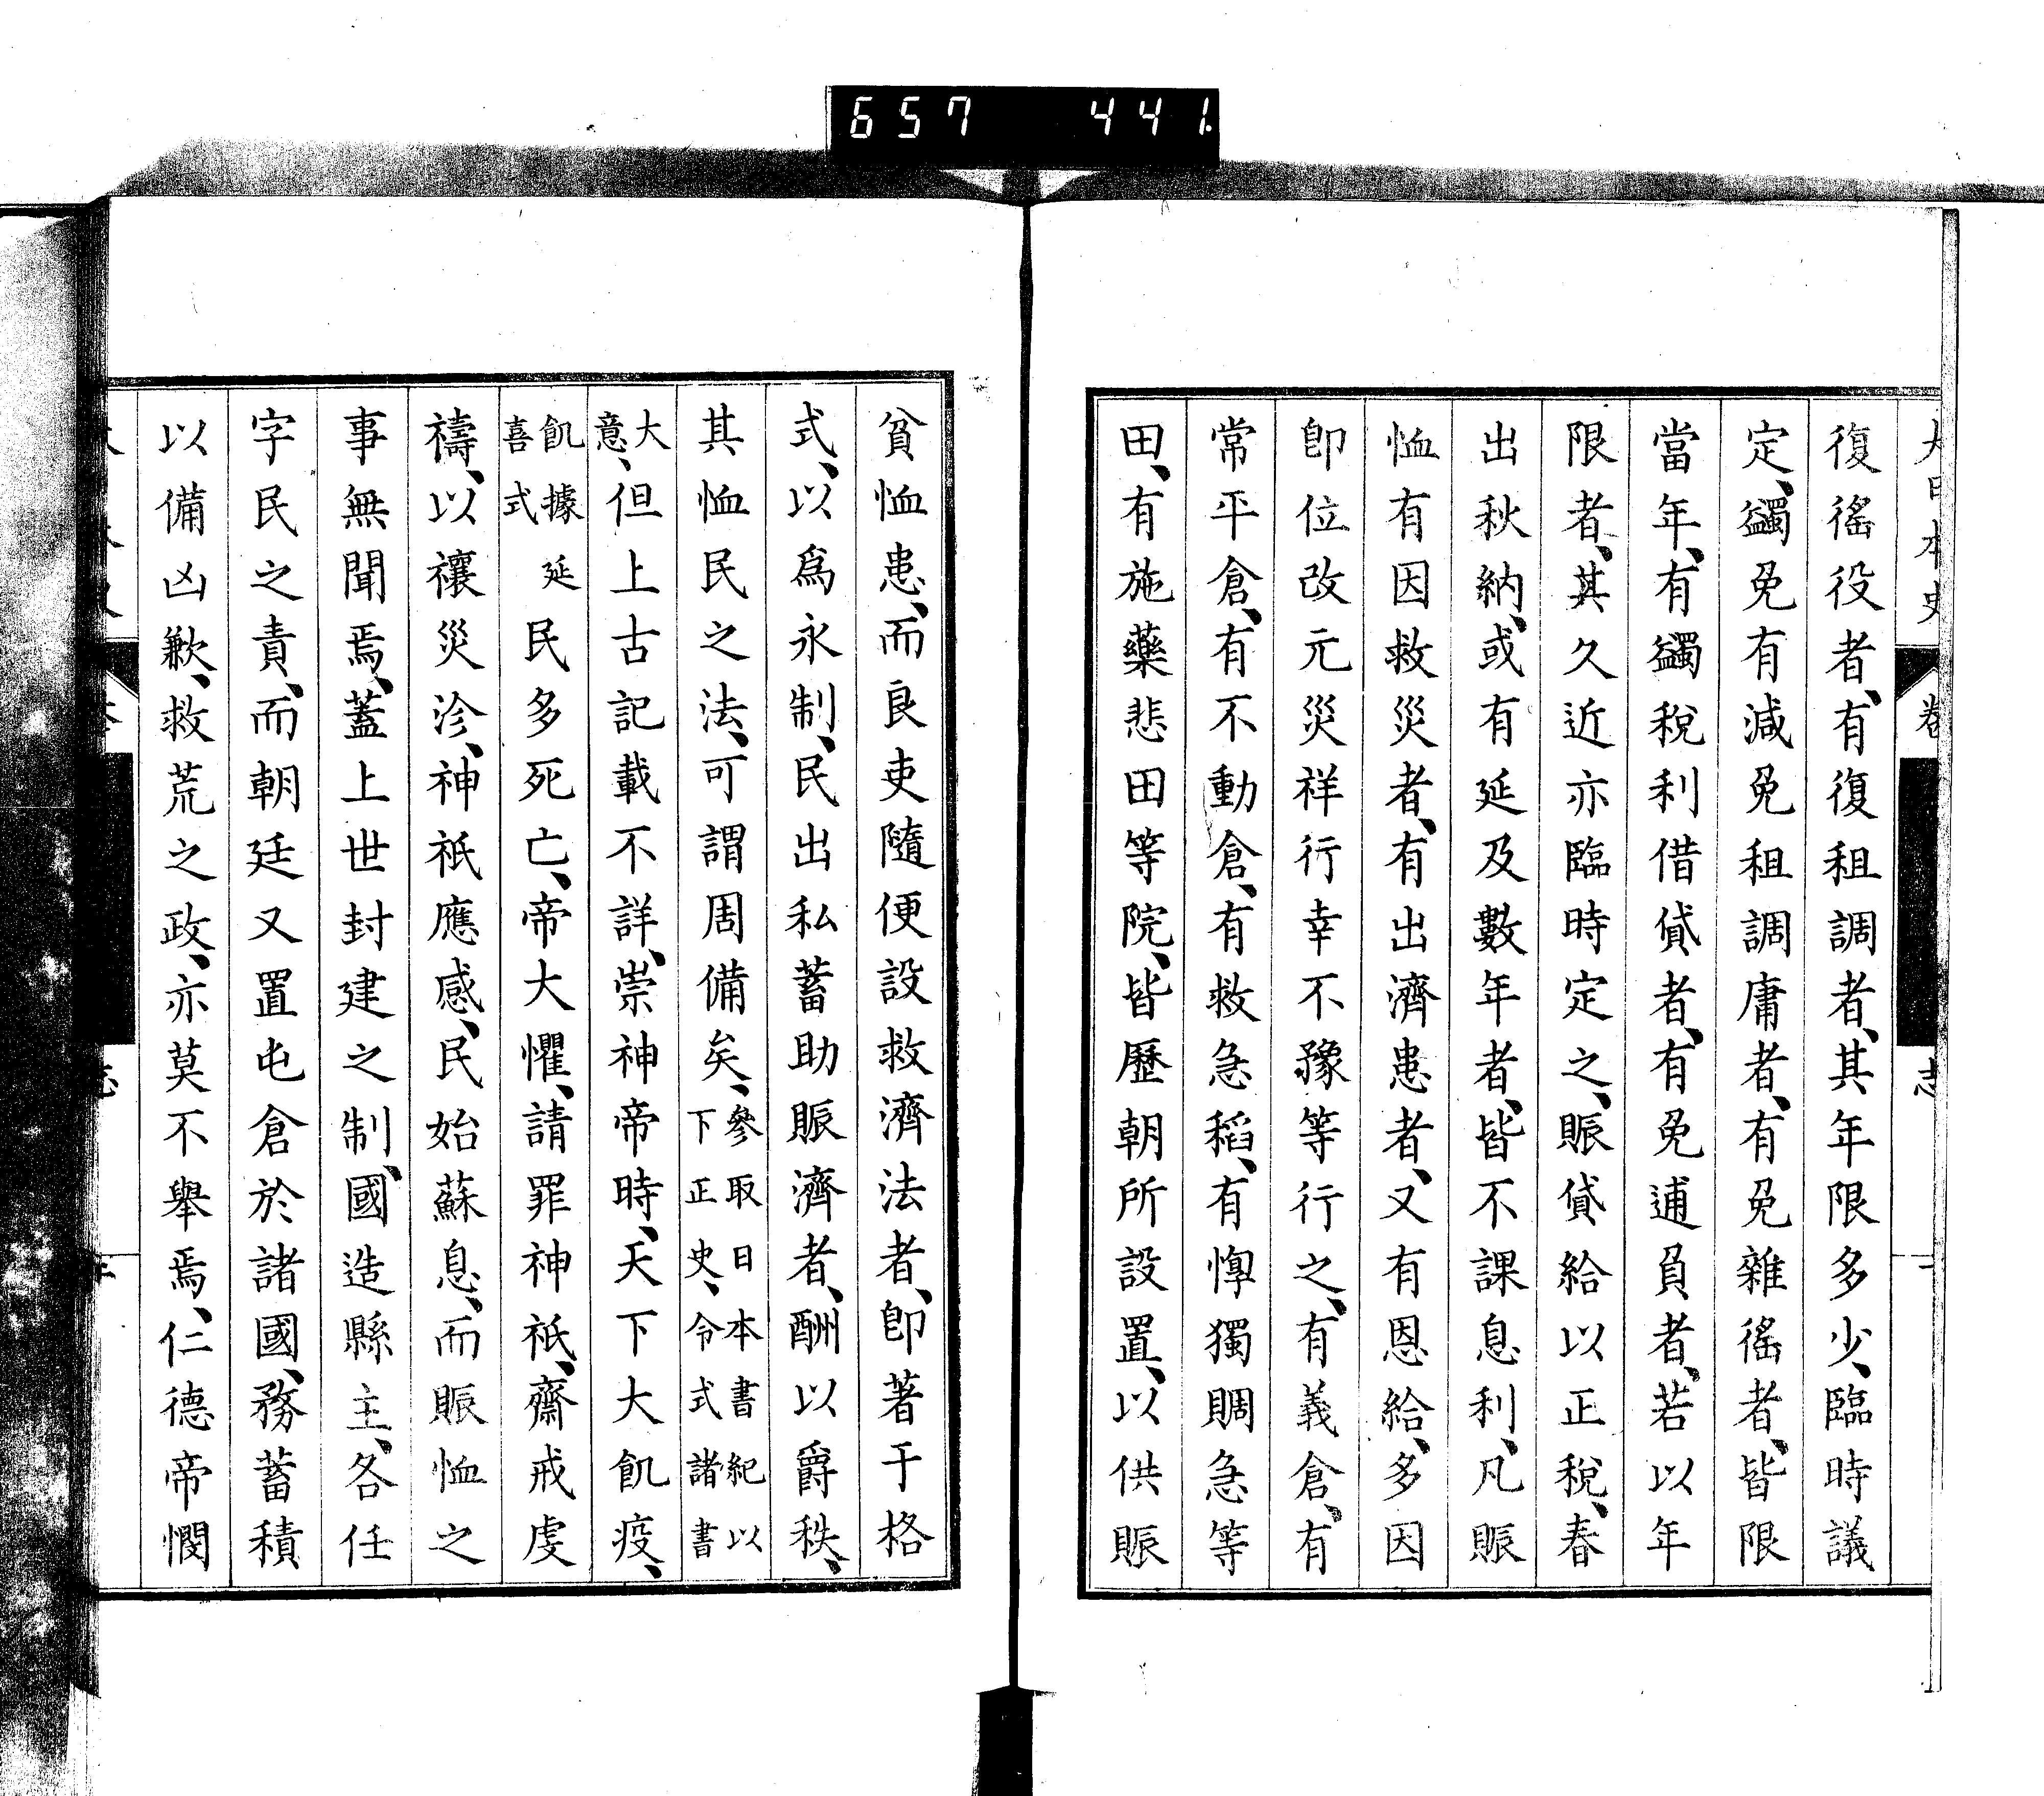 657 441
大日本史 卷 志
復徭役者、有復租調者、其年限多少、臨時議
定、蠲免有減免租調庸者、有免雜徭者、皆限
當年、有蠲稅利借貸者、有免逋負者、若以年
限者、其久近亦臨時定之、賑貸給以正稅、春
出秋納、或有延及數年者、皆不課息利、凡賑
恤有因救災者、有出濟患者、又有恩給、多因
卽位改元災祥行幸不豫等行之、有義倉、有
常平倉、有不動倉、有救急稻、有惸獨賙急等
田、有施藥悲田等院、皆歷朝所設置、以供賑
貧恤患、而良吏隨便設救濟法者、卽著于格
式、以爲永制、民出私蓄助賑濟者、酬以爵秩、
其恤民之法、可謂周備矣、參取日本書紀以下正史、令式諸書
大意、但上古記載不詳、崇神帝時、天下大飢疫、
飢據延喜式民多死亡、帝大懼、請罪神祇、齋戒虔
禱、以禳災沴、神祇應感、民始蘇息、而賑恤之
事無聞焉、蓋上世封建之制、國造縣主、各任
字民之責、而朝廷又置屯倉於諸國、務蓄積
以備凶歉、救荒之政、亦莫不擧焉、仁德帝憫